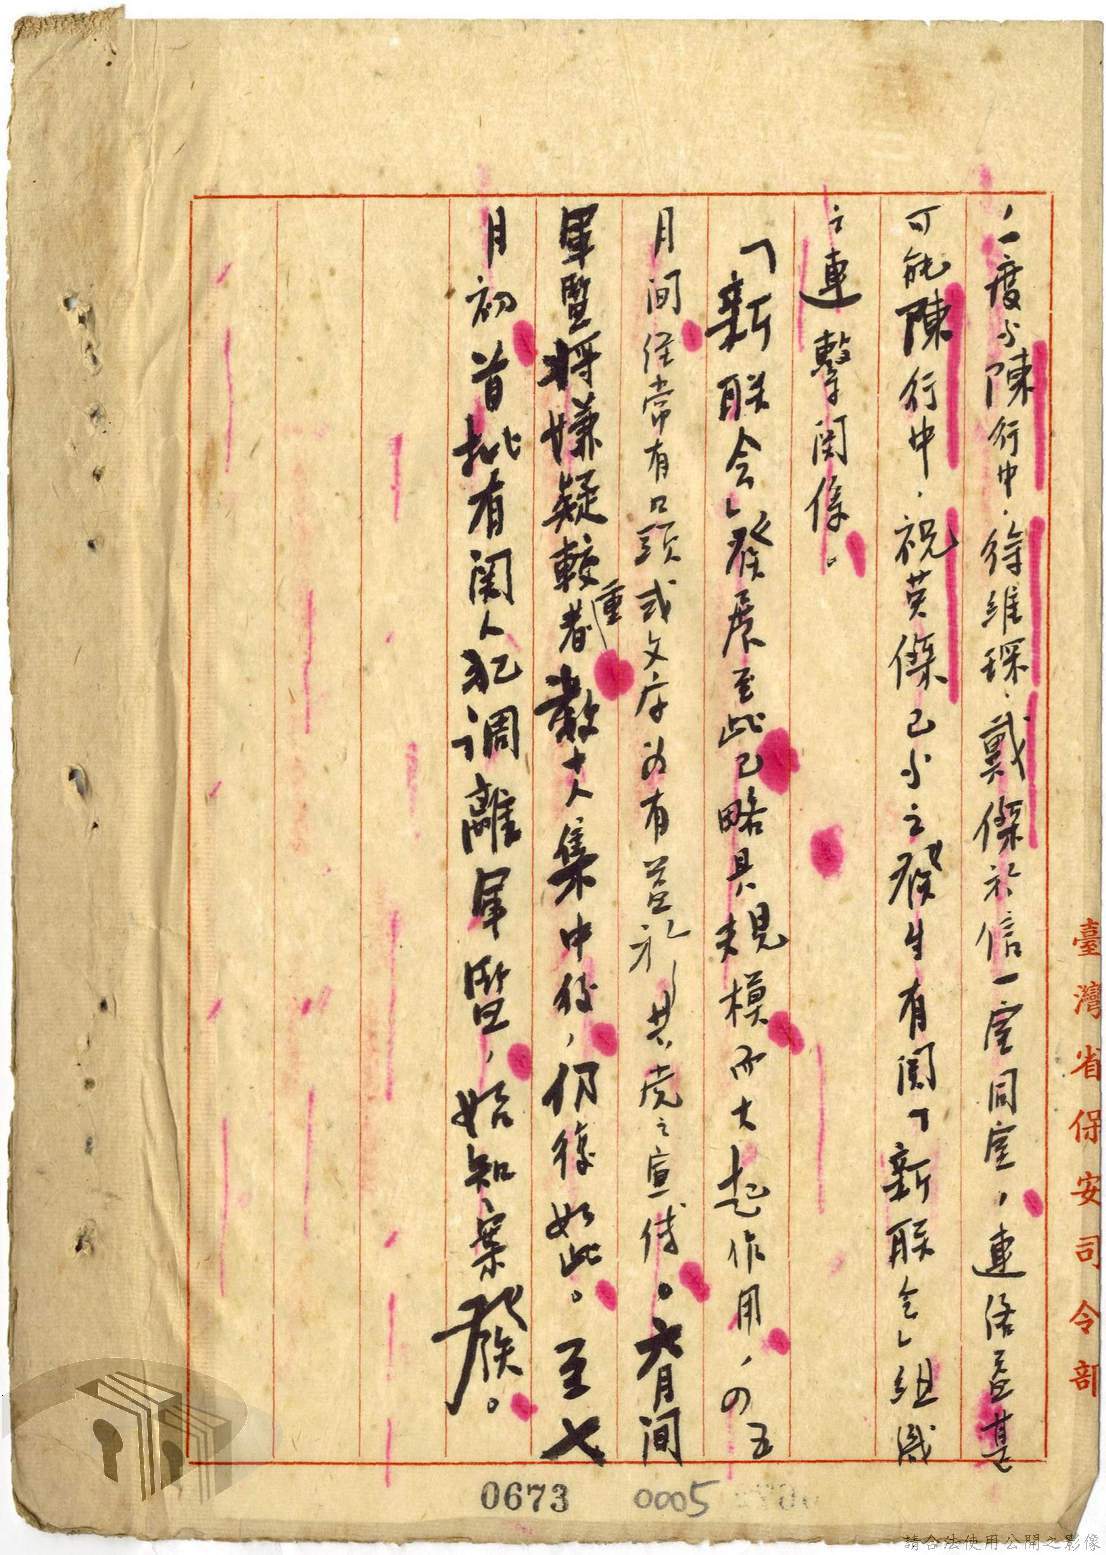 ，一度與陳行中．徐維琛．戴傑於信一室同室，連絡至其
可能陳行中．祝英傑已與之發生有關「新联会」組織
之連繫関係。
「新联会」發展至此已略具規模而大起作用，四五
月间經常有口頭或文字為有益於共党之宣传。六月间
軍監将嫌疑較重者數十人集中後，仍復如此。至七
月初首批有関人犯调離軍監，始知案發。
臺灣省保安司令部
0673
0005
請合法使用公開之影像